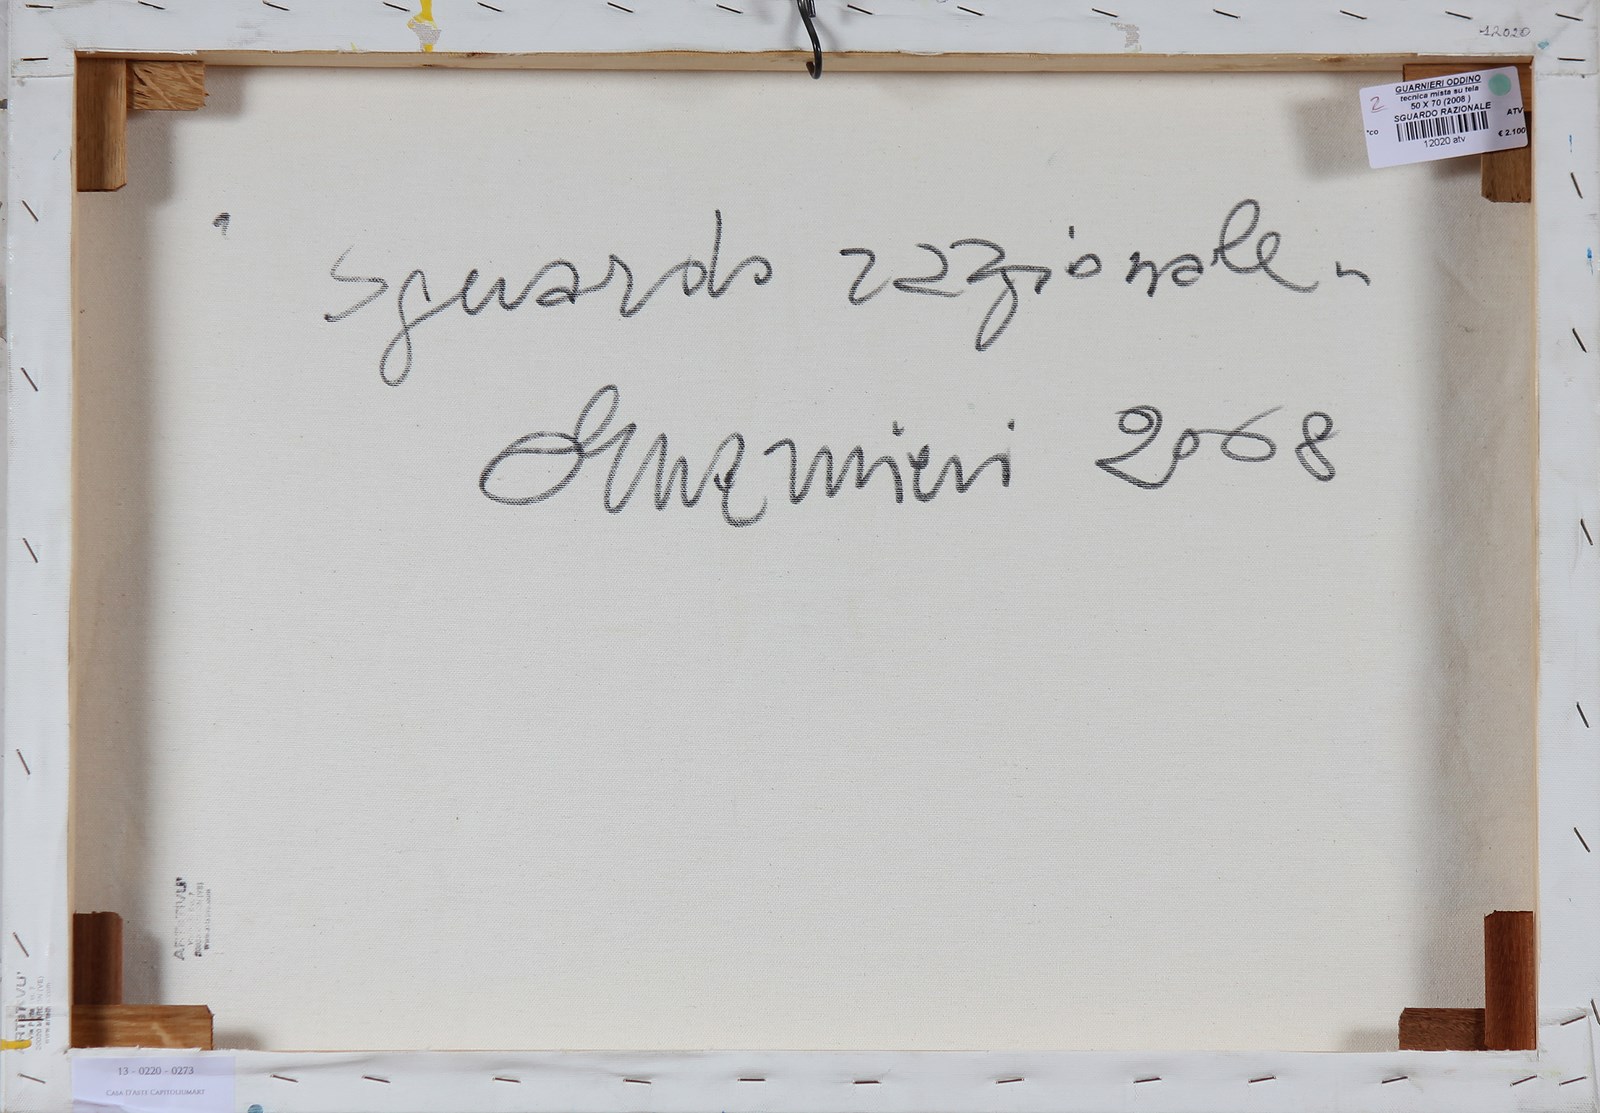 12020
GUARNIERI ODDINO
tecnica mista su tela
50 X 70 (2008 )
SGUARDO RAZIONALE
2
ATV
*co
€ 2.100
12020 atv
" Sguardo razionale "
Guarnieri 2008
13 - 0220 - 0273
CASA D'ARTE CAPITOLIUMART